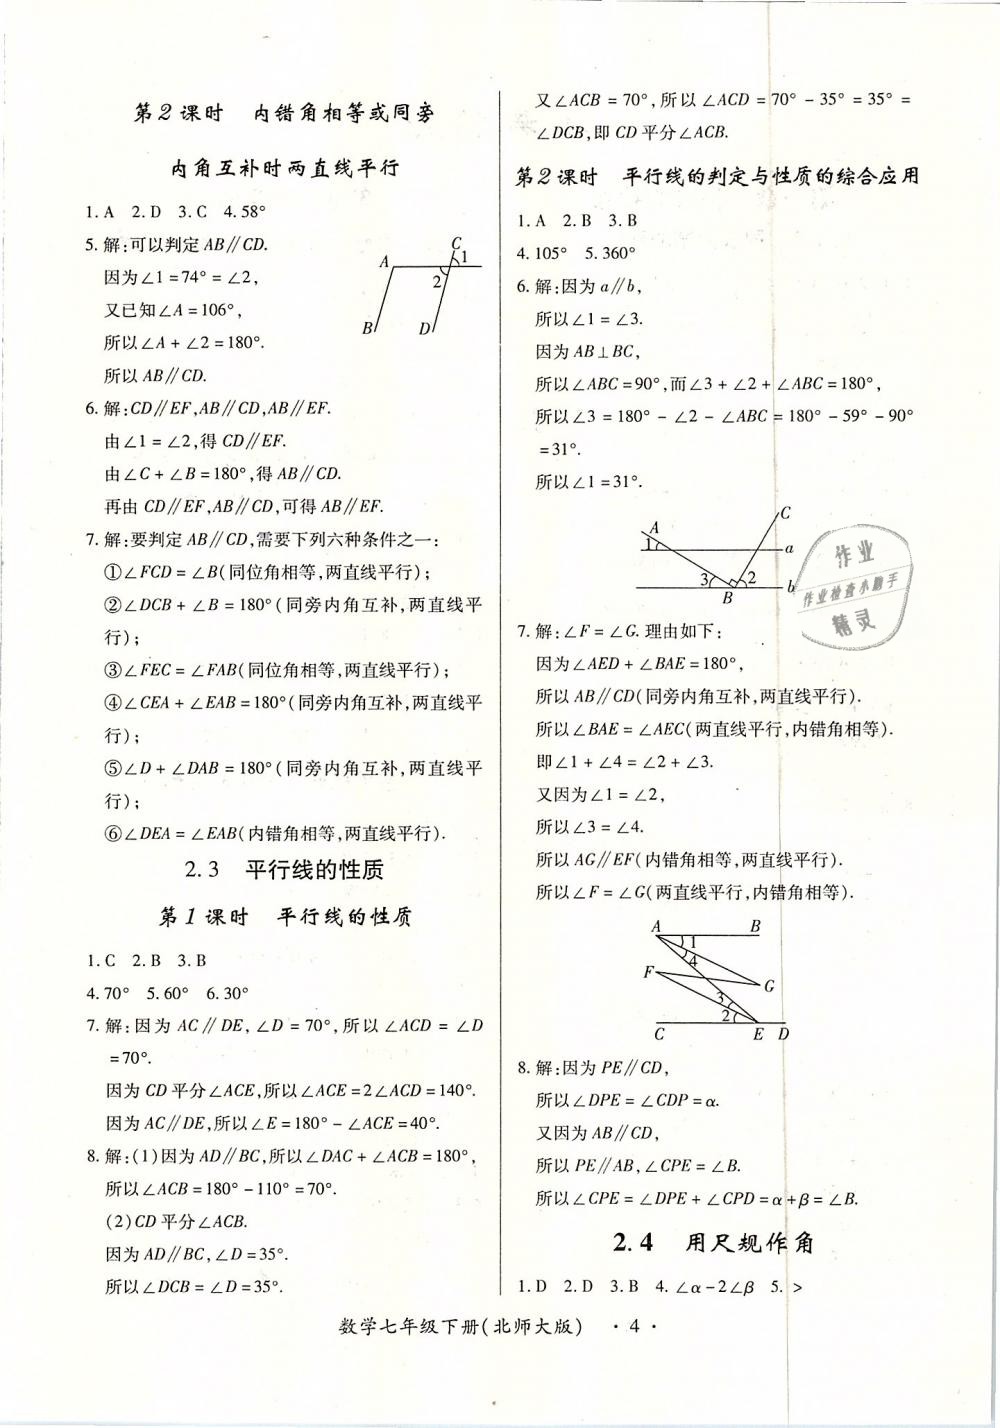 第2课时　内错角相等或同旁
内角互补时两直线平行
1. A　2. D　3. C　4. 58°
5. 解:可以判定 AB∥CD.
因为∠1 = 74° = ∠2,
又已知∠A = 106°,
所以∠A + ∠2 = 180°.
所以 AB∥CD.
A
C
1
2
B
D
6. 解:CD∥EF,AB∥CD,AB∥EF.
由∠1 = ∠2,得 CD∥EF.
由∠C + ∠B = 180°,得 AB∥CD.
再由 CD∥EF,AB∥CD,可得 AB∥EF.
7. 解:要判定 AB∥CD,需要下列六种条件之一:
①∠FCD = ∠B(同位角相等,两直线平行);
②∠DCB + ∠B = 180°(同旁内角互补,两直线平
行);
③∠FEC = ∠FAB(同位角相等,两直线平行);
④∠CEA + ∠EAB = 180°(同旁内角互补,两直线平
行);
⑤∠D + ∠DAB = 180°(同旁内角互补,两直线平
行);
⑥∠DEA = ∠EAB(内错角相等,两直线平行).
2.3　平行线的性质
第1课时　平行线的性质
1. C　2. B　3. B
4. 70°　5. 60°　6. 30°
7. 解:因为 AC∥DE, ∠D = 70°,所以 ∠ACD = ∠D
= 70°.
因为 CD 平分∠ACE,所以∠ACE = 2∠ACD = 140°.
因为 AC∥DE,所以∠E = 180° - ∠ACE = 40°.
8. 解:(1)因为 AD∥BC,所以∠DAC + ∠ACB = 180°,
所以∠ACB = 180° - 110° = 70°.
(2)CD 平分∠ACB.
因为 AD∥BC,∠D = 35°.
所以∠DCB = ∠D = 35°.
又∠ACB = 70°,所以∠ACD = 70° - 35° = 35° =
∠DCB,即 CD 平分∠ACB.
第2课时　平行线的判定与性质的综合应用
1. A　2. B　3. B
4. 105°　5. 360°
6. 解:因为 a∥b,
所以∠1 = ∠3.
因为 AB⊥BC,
所以∠ABC = 90°,而∠3 + ∠2 + ∠ABC = 180°,
所以∠3 = 180° - ∠2 - ∠ABC = 180° - 59° - 90°
= 31°.
所以∠1 = 31°.
A
C
1
a
3
2
b
B
作业
作业检查小助手
精灵
7. 解:∠F = ∠G. 理由如下:
因为∠AED + ∠BAE = 180°,
所以 AB∥CD(同旁内角互补,两直线平行).
所以∠BAE = ∠AEC(两直线平行,内错角相等).
即∠1 + ∠4 = ∠2 + ∠3.
又因为∠1 = ∠2,
所以∠3 = ∠4.
所以 AG∥EF(内错角相等,两直线平行).
所以∠F = ∠G(两直线平行,内错角相等).
A
B
1
4
F
G
3
2
C
E
D
8. 解:因为 PE∥CD,
所以∠DPE = ∠CDP = α.
又因为 AB∥CD,
所以 PE∥AB,∠CPE = ∠B.
所以∠CPE = ∠DPE + ∠CPD = α + β = ∠B.
2.4　用尺规作角
1. D　2. D　3. B　4. ∠α - 2∠β　5. >
数学七年级下册(北师大版)　· 4 ·